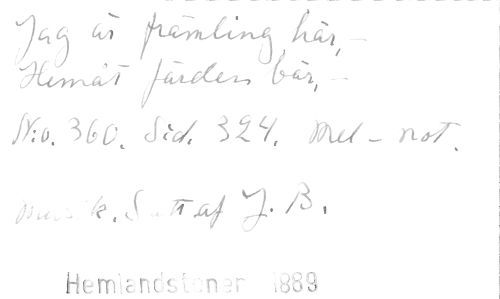 Jag är främling här, –
Hemåt färden bär, –
N:o. 360. Sid. 324. Mel – not.
musik. Satt af J. B.
Hemlandstoner 1889